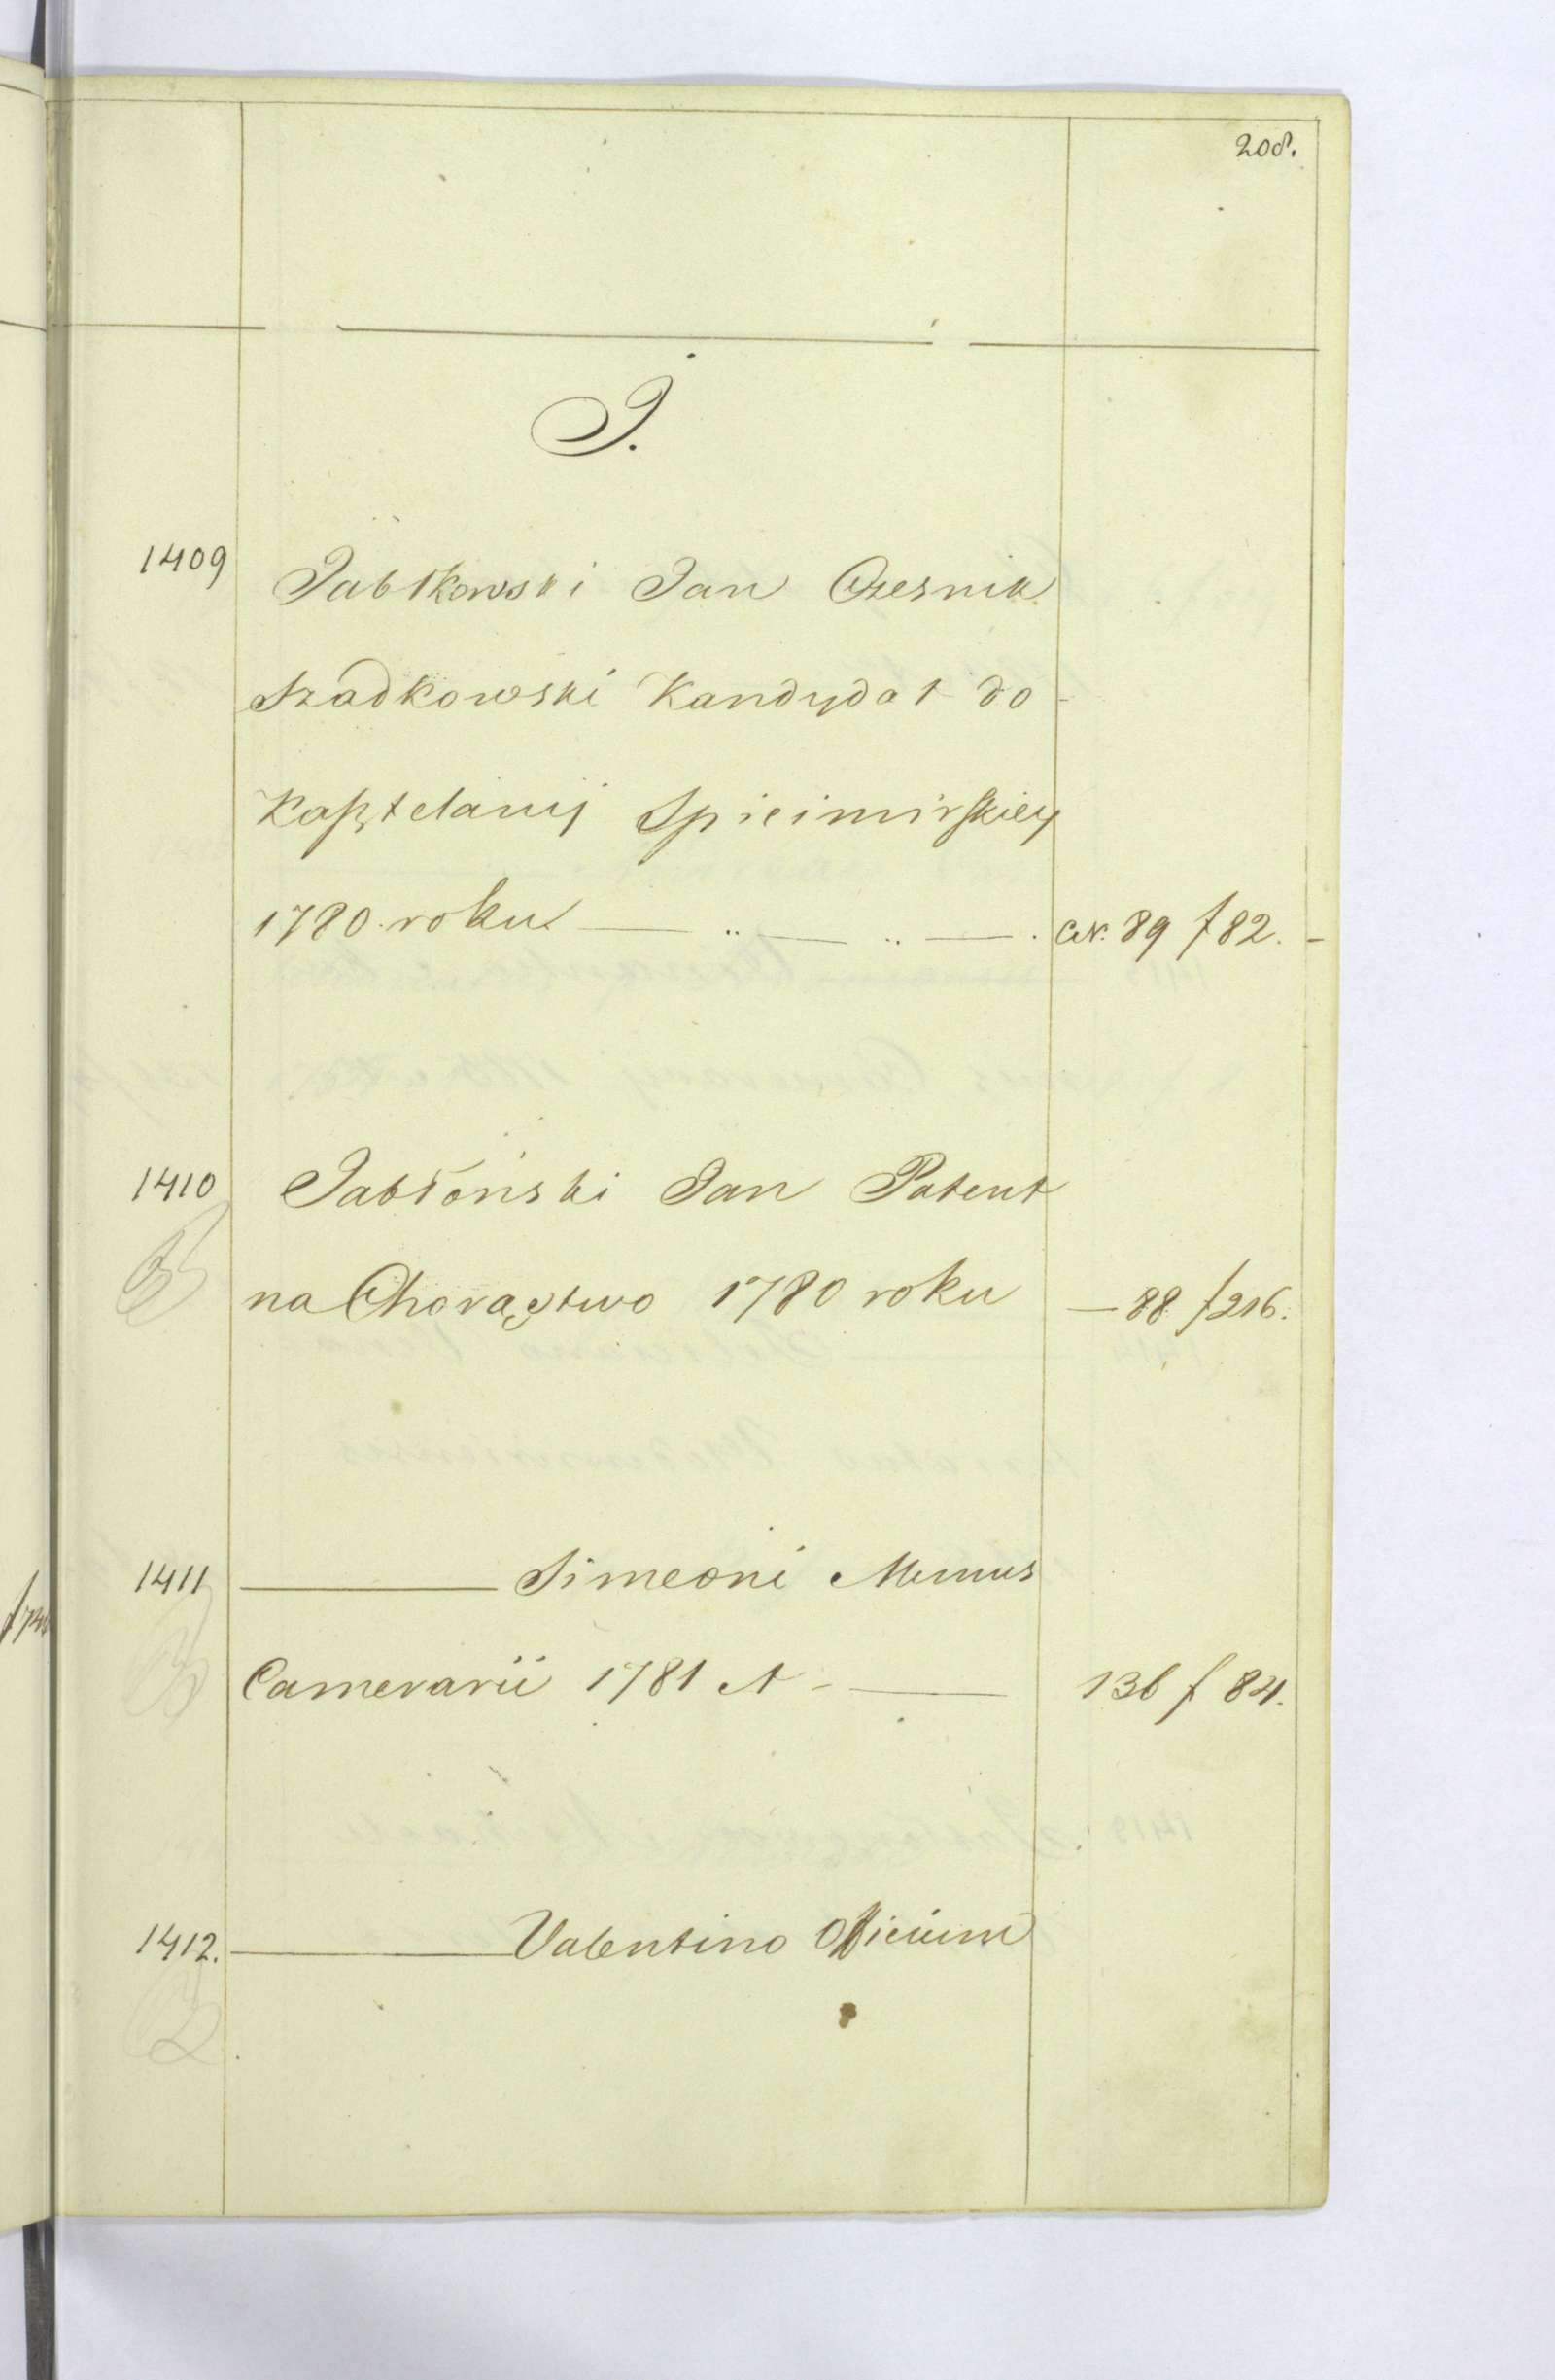 208.
J.
1409 Jabłkowski Jan Czesnik
Szadkowski Kandydat do
Kasztelanij Spicimirskiey
1780 roku — „ — „ — . CN. 89 f 82. -
1410 Jabłoński Jan Patent
na Chorąstwo 1780 roku — 88 f 216.
1411 ——— Simeoni Munus
Camerarii 1781 A - — 136 f 84.
1412. ——— Valentino Officium